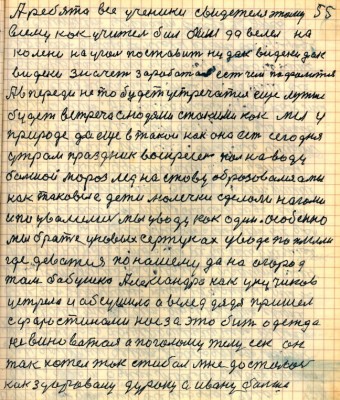 А ребята все ученики свидетеля этому 55
всему как учител бил меня до велел на
колени на угол поставит ну дак видеки дак
видеки значет заработал ест чем
А впереди не то будет устречатся еще лутше
будет встреча с людями с такими как мы у
природе да еще в такой как она ест сегодня
утрам праздник воскресен пол на воду
болшой мороз лед на ставу образовался а ми
как таковие дети молечки зделали ногами
и повалилися мы у воду как один. особенно
мы брат е у новых сертуках у воде поплили
где деватся по нашему да на огород
там бабушка Александра как унучиков
устрела и обсушила а вслед дядя пришел
с растинами нас за это бит одежда
не виноватая а по голому телу сек он
так хотел так стибал мне досталос
как здоровому дураку а ивану болше